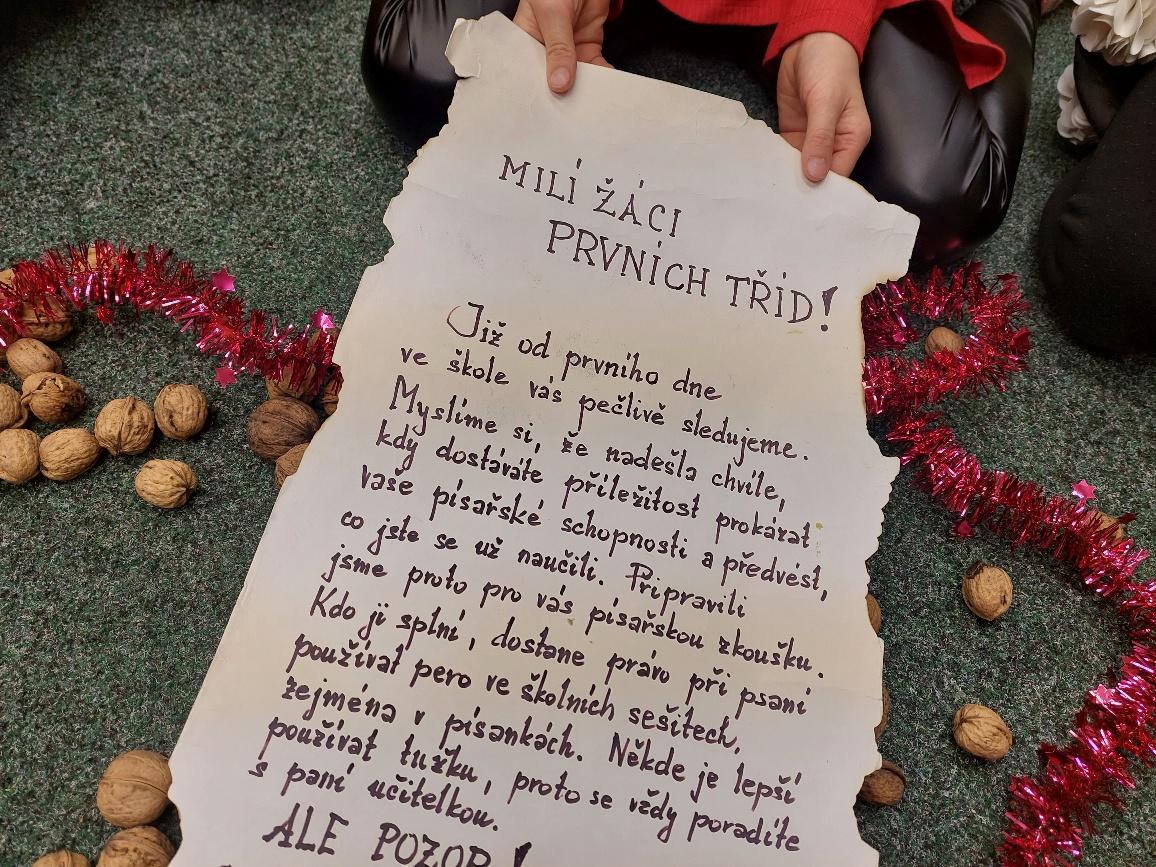 MILÍ ŽÁCI
PRVNÍCH TŘÍD!
Již od prvního dne
ve škole vás pečlivě sledujeme.
Myslíme si, že nadešla chvíle,
kdy dostáváte příležitost prokázat
vaše písařské schopnosti a předvést,
co jste se už naučili. Připravili
jsme proto pro vás písařskou zkoušku.
Kdo ji splní, dostane právo při psaní
používat pero ve školních sešitech,
zejména v písankách. Někde je lepší
používat tužku, proto se vždy poradíte
s paní učitelkou.
ALE POZOR!